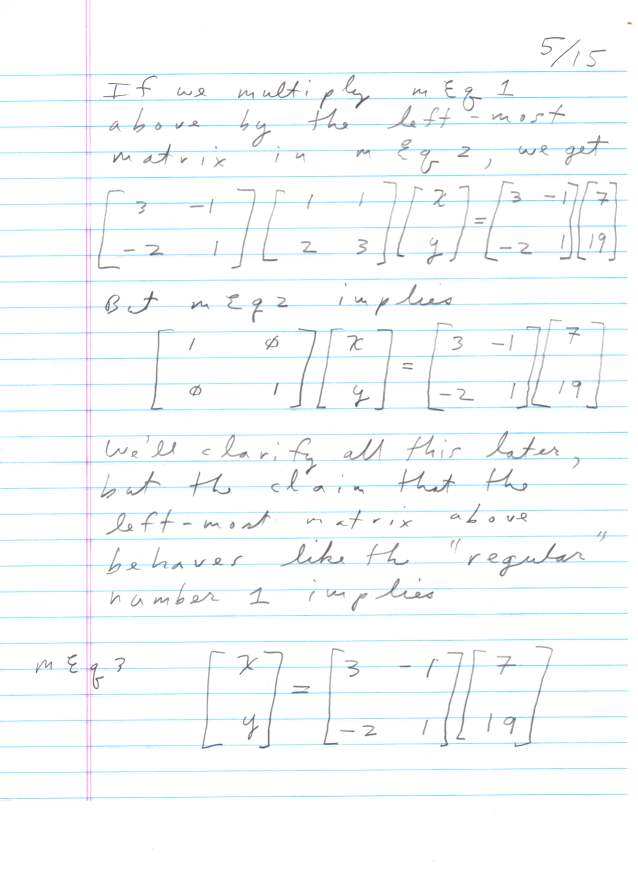 5/15
If we multiply mEq 1
above by the left-most
matrix in mEq 2, we get
[3 -1; -2 1] [1 1; 2 3] [x; y] = [3 -1; -2 1] [7; 19]
But mEq 2 implies
[1 0; 0 1] [x; y] = [3 -1; -2 1] [7; 19]
We'll clarify all this later,
but the claim that the
left-most matrix above
behaves like the "regular"
number 1 implies
mEq 3 [x; y] = [3 -1; -2 1] [7; 19]